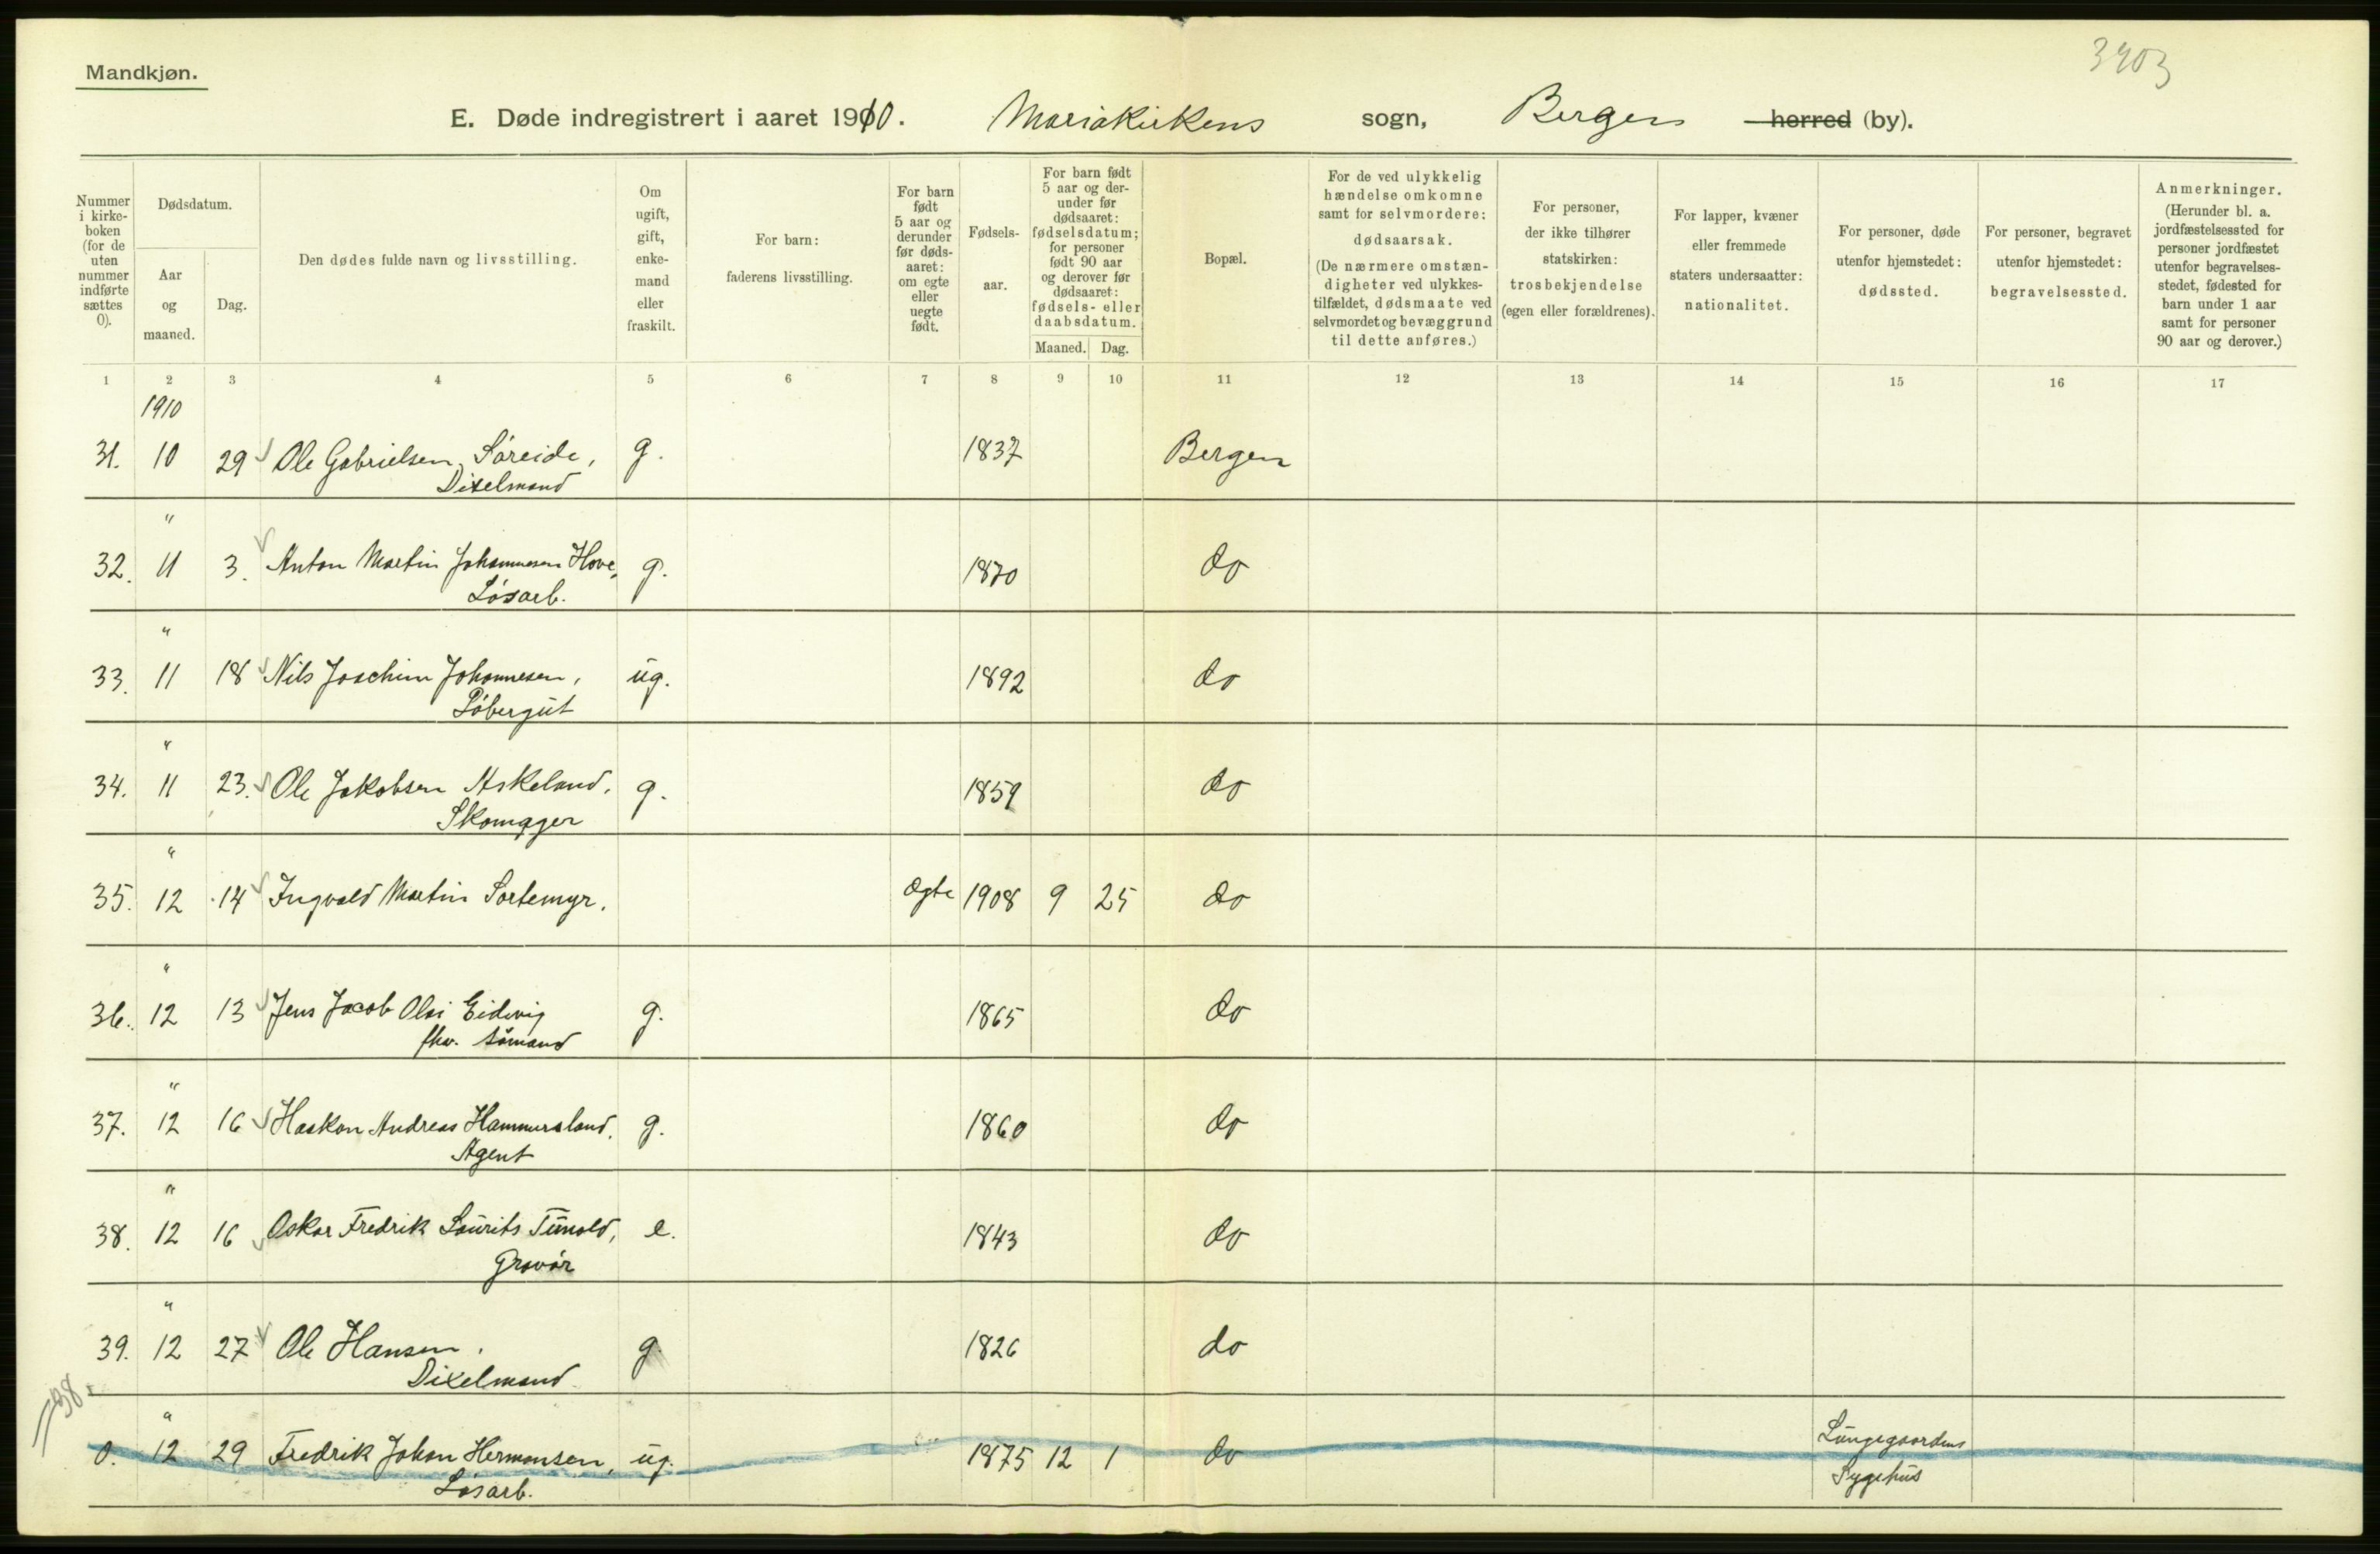 3403
Mandkjøn.
E. Døde indregistrert i aaret 1910. Mariakirkens sogn, Bergen herred (by).
Nummer i kirkeboken (for de uten nummer indførte sættes 0).
Dødsdatum.
Aar og maaned.
Dag.
Den dødes fulde navn og livsstilling.
Om ugift, gift, enkemand eller fraskilt.
For barn: faderens livsstilling.
For barn født 5 aar og derunder før dødsaaret: om egte eller uegte født.
Fødselsaar.
For barn født 5 aar og derunder før dødsaaret: fødselsdatum; for personer født 90 aar og derover før dødsaaret: fødsels- eller daabsdatum.
Maaned.
Dag.
Bopæl.
For de ved ulykkelig hændelse omkomne samt for selvmordere: dødsaarsak. (De nærmere omstændigheter ved ulykkestilfældet, dødsmaate ved selvmordet og bevæggrund til dette anføres.)
For personer, der ikke tilhører statskirken: trosbekjendelse (egen eller forældrenes).
For lapper, kvæner eller fremmede staters undersaatter: nationalitet.
For personer, døde utenfor hjemstedet: dødssted.
For personer, begravet utenfor hjemstedet: begravelsessted.
Anmerkninger. (Herunder bl. a. jordfæstelsessted for personer jordfæstet utenfor begravelsesstedet, fødested for barn under 1 aar samt for personer 90 aar og derover.)
1 2 3 4 5 6 7 8 9 10 11 12 13 14 15 16 17
1910
31. 10 29 Ole Gabrielsen Søreide, g. 1837 Bergen
Dixelmand
"
32. 11 3. Anton Martin Johannesen Hove, g. 1870 do
Løsarb.
"
33. 11 18 Nils Joachim Johannesen, ug. 1892 do
Løbergut
"
34. 11 23. Ole Jakobsen Askeland, g. 1859 do
Skomager
"
35. 12 14 Ingvald Martin Sortemyr. Ægte 1908 9 25 do
"
36. 12 13 Jens Jacob Olai Eidsvig g. 1865 do
fhv. sømand
"
37. 12 16 Haakon Andreas Hammersland, g. 1860 do
Agent
"
38. 12 16 Oskar Fredrik Laurits Tunold, e. 1843 do
Gravør
"
39. 12 27 Ole Hansen, g. 1826 do
Dixelmand
"
0. 12 29 Fredrik Johan Hermansen, ug. 1875 12 1 do Lungegaardens
Løsarb. Sygehus